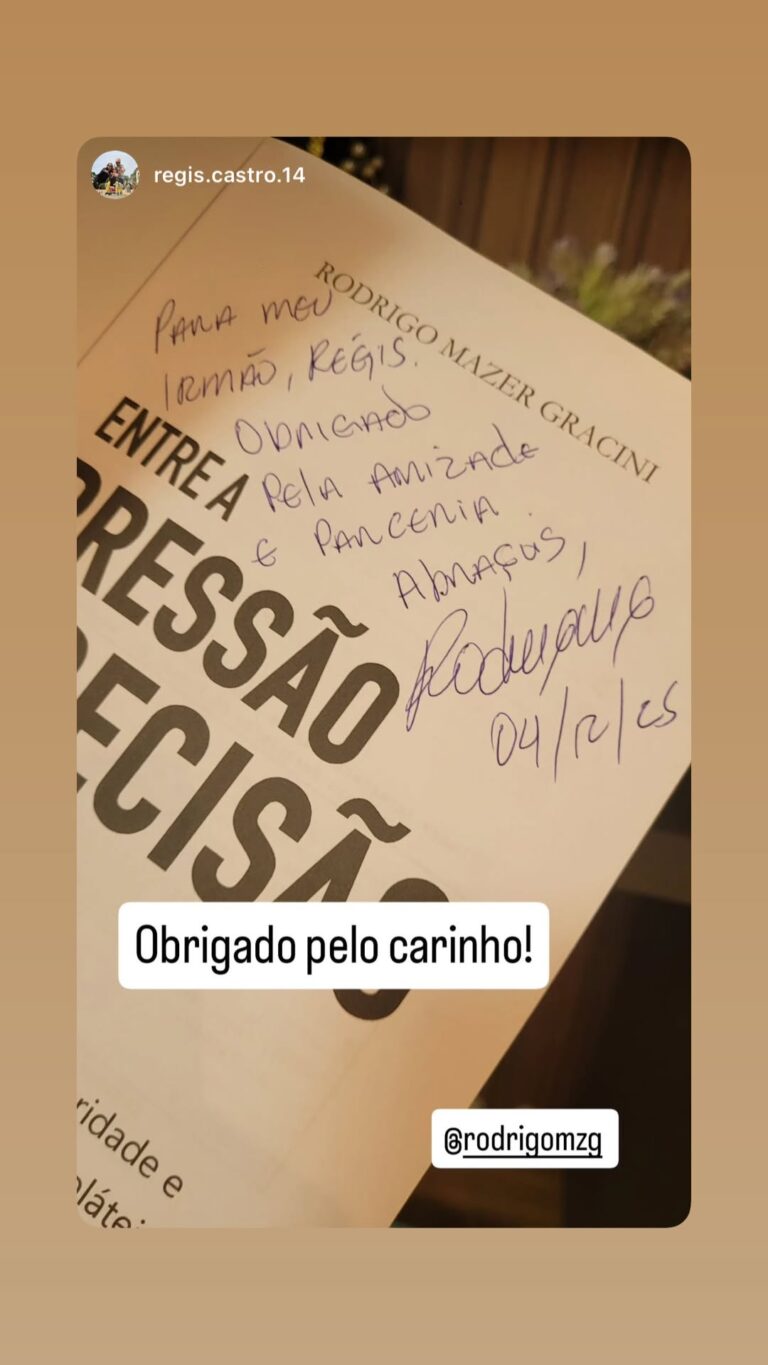 regis.castro.14
RODRIGO MAZER GRACINI
PARA MEU
IRMÃO, RÉGIS.
OBRIGADO
PELA AMIZADE
E PARCERIA.
ABRAÇOS,
04/12/25
ENTRE A
RESSÃO
ECISÃO
Obrigado pelo carinho!
@rodrigomzg
ridade e